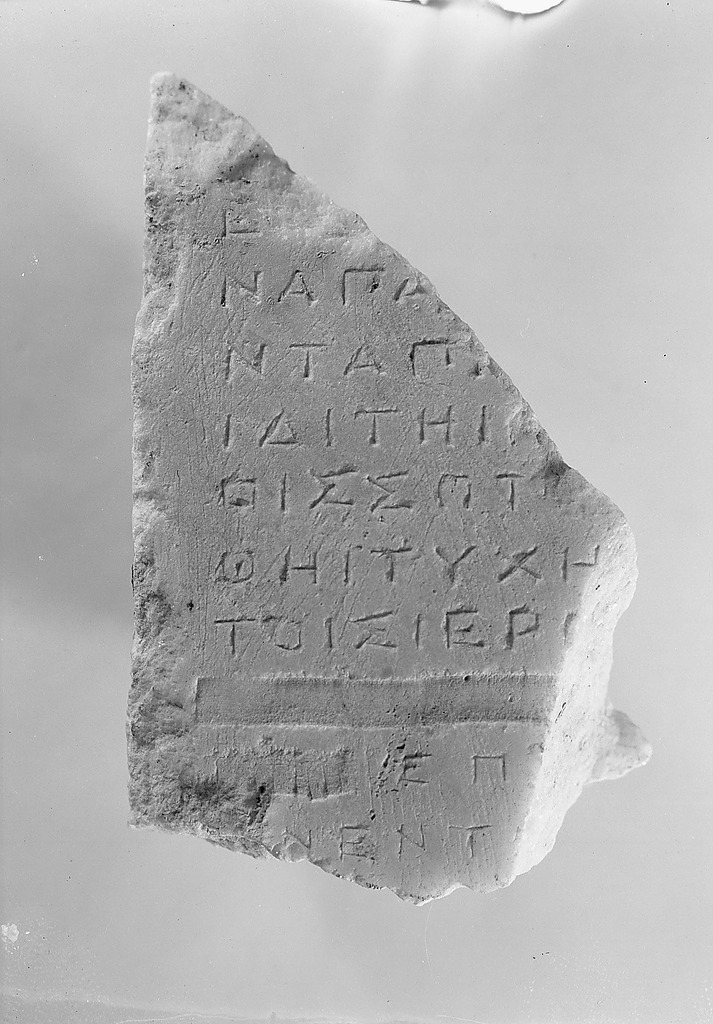 Ε
ΝΑΠΑ
ΝΤΑΠ
ΙΔΙΤΗΙ
ΟΙΣΣΩΤ
ΘΗΙΤΥΧΗ
ΤΟΙΣΙΕΡ
ΕΠ
ΝΕΝΤ